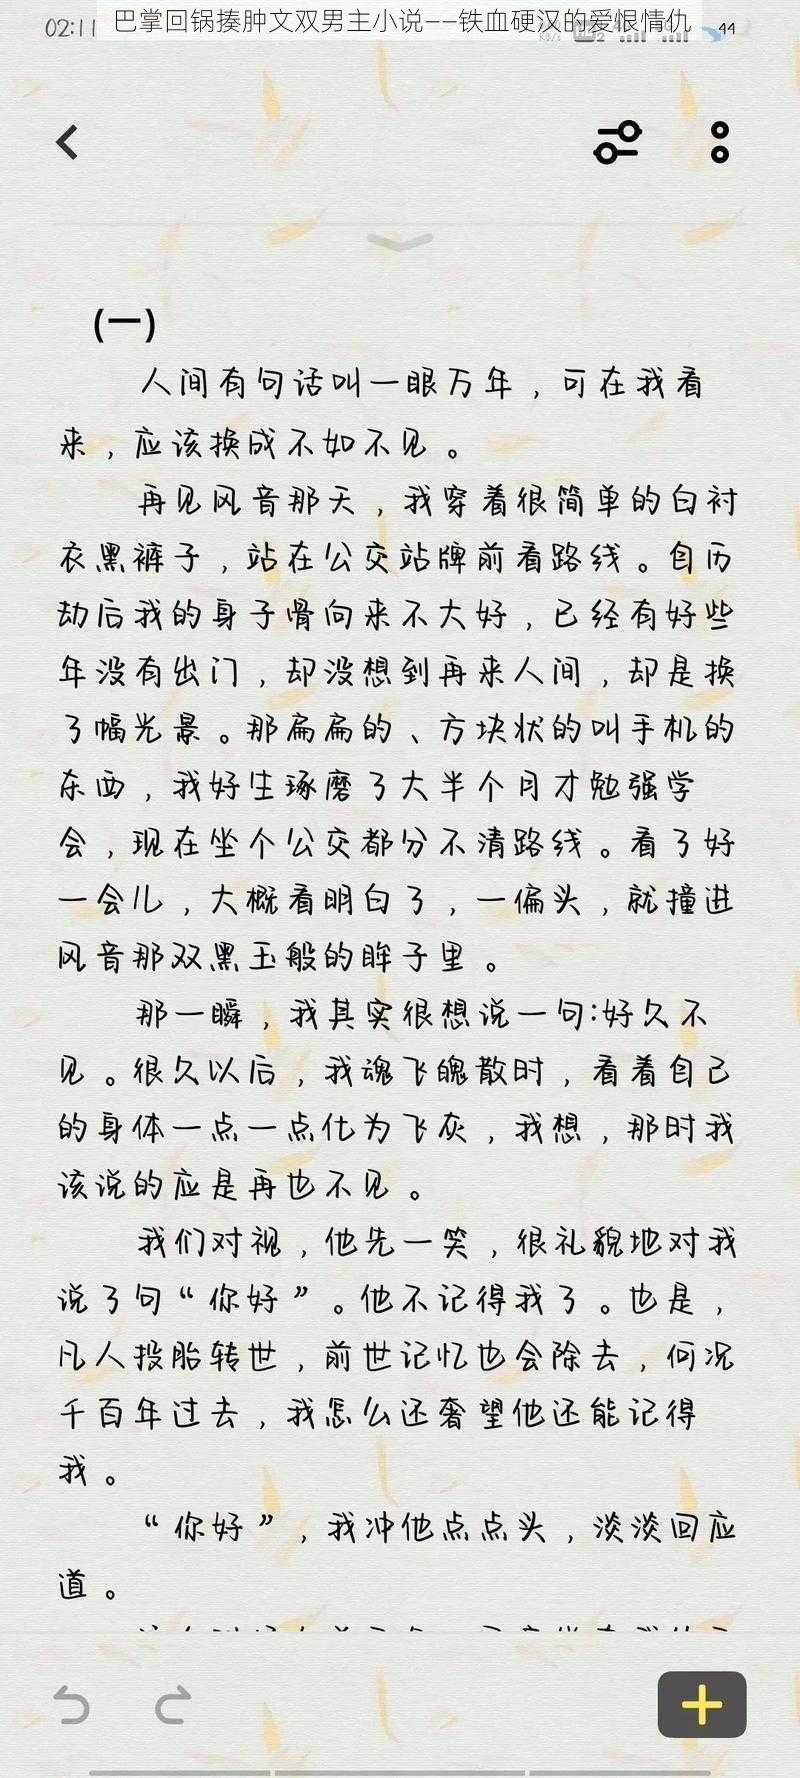 02:11
巴掌回锅揍肿文双男主小说——铁血硬汉的爱恨情仇
44
(一)
人间有句话叫一眼万年，可在我看
来，应该换成不如不见。
再见风音那天，我穿着很简单的白衬
衣黑裤子，站在公交站牌前看路线。自历
劫后我的身子骨向来不大好，已经有好些
年没有出门，却没想到再来人间，却是换
了幅光景。那扁扁的、方块状的叫手机的
东西，我好生琢磨了大半个月才勉强学
会，现在坐个公交都分不清路线。看了好
一会儿，大概看明白了，一偏头，就撞进
风音那双黑玉般的眸子里。
那一瞬，我其实很想说一句:好久不
见。很久以后，我魂飞魄散时，看着自己
的身体一点一点化为飞灰，我想，那时我
该说的应是再也不见。
我们对视，他先一笑，很礼貌地对我
说了句“你好”。他不记得我了。也是，
凡人投胎转世，前世记忆也会除去，何况
千百年过去，我怎么还奢望他还能记得
我。
“你好”，我冲他点点头，淡淡回应
道。